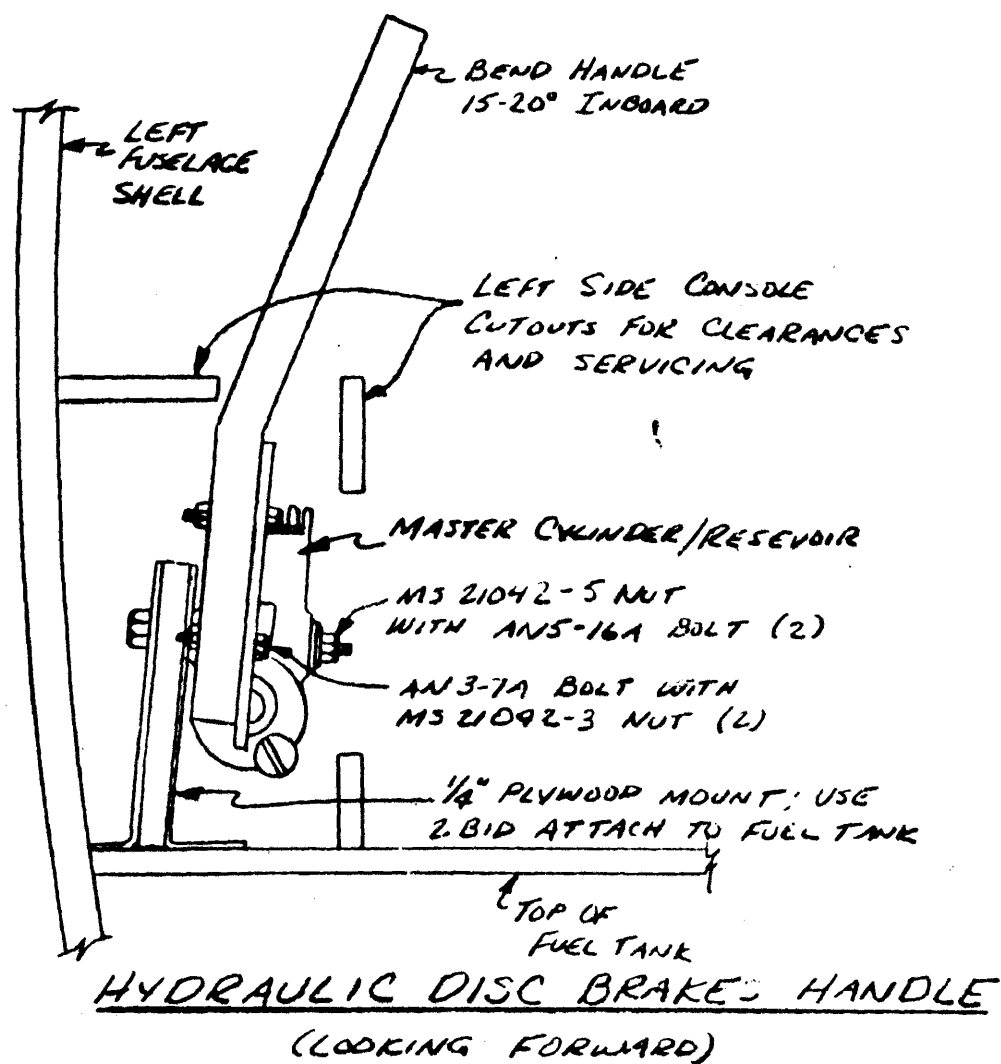 BEND HANDLE
15-20° INBOARD
LEFT
FUSELAGE
SHELL
LEFT SIDE CONSOLE
CUTOUTS FOR CLEARANCES
AND SERVICING
MASTER CYLINDER/RESEVOIR
MS 21042-5 NUT
WITH AN5-16A BOLT (2)
AN3-7A BOLT WITH
MS 21042-3 NUT (2)
1/4" PLYWOOD MOUNT; USE
2 BID ATTACH TO FUEL TANK
TOP OF
FUEL TANK
HYDRAULIC DISC BRAKES HANDLE
(LOOKING FORWARD)